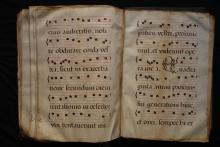 eius audieritis, no
te obdurare corda ves
tra, sicut in exacerba
tione secundum diem
tentationis in deserto:
ubi tentaverunt me
patres vestri, probave
et viderunt opera
me a.
ginta annis proximus
fui generationi huic,
et dixi, semper hi er